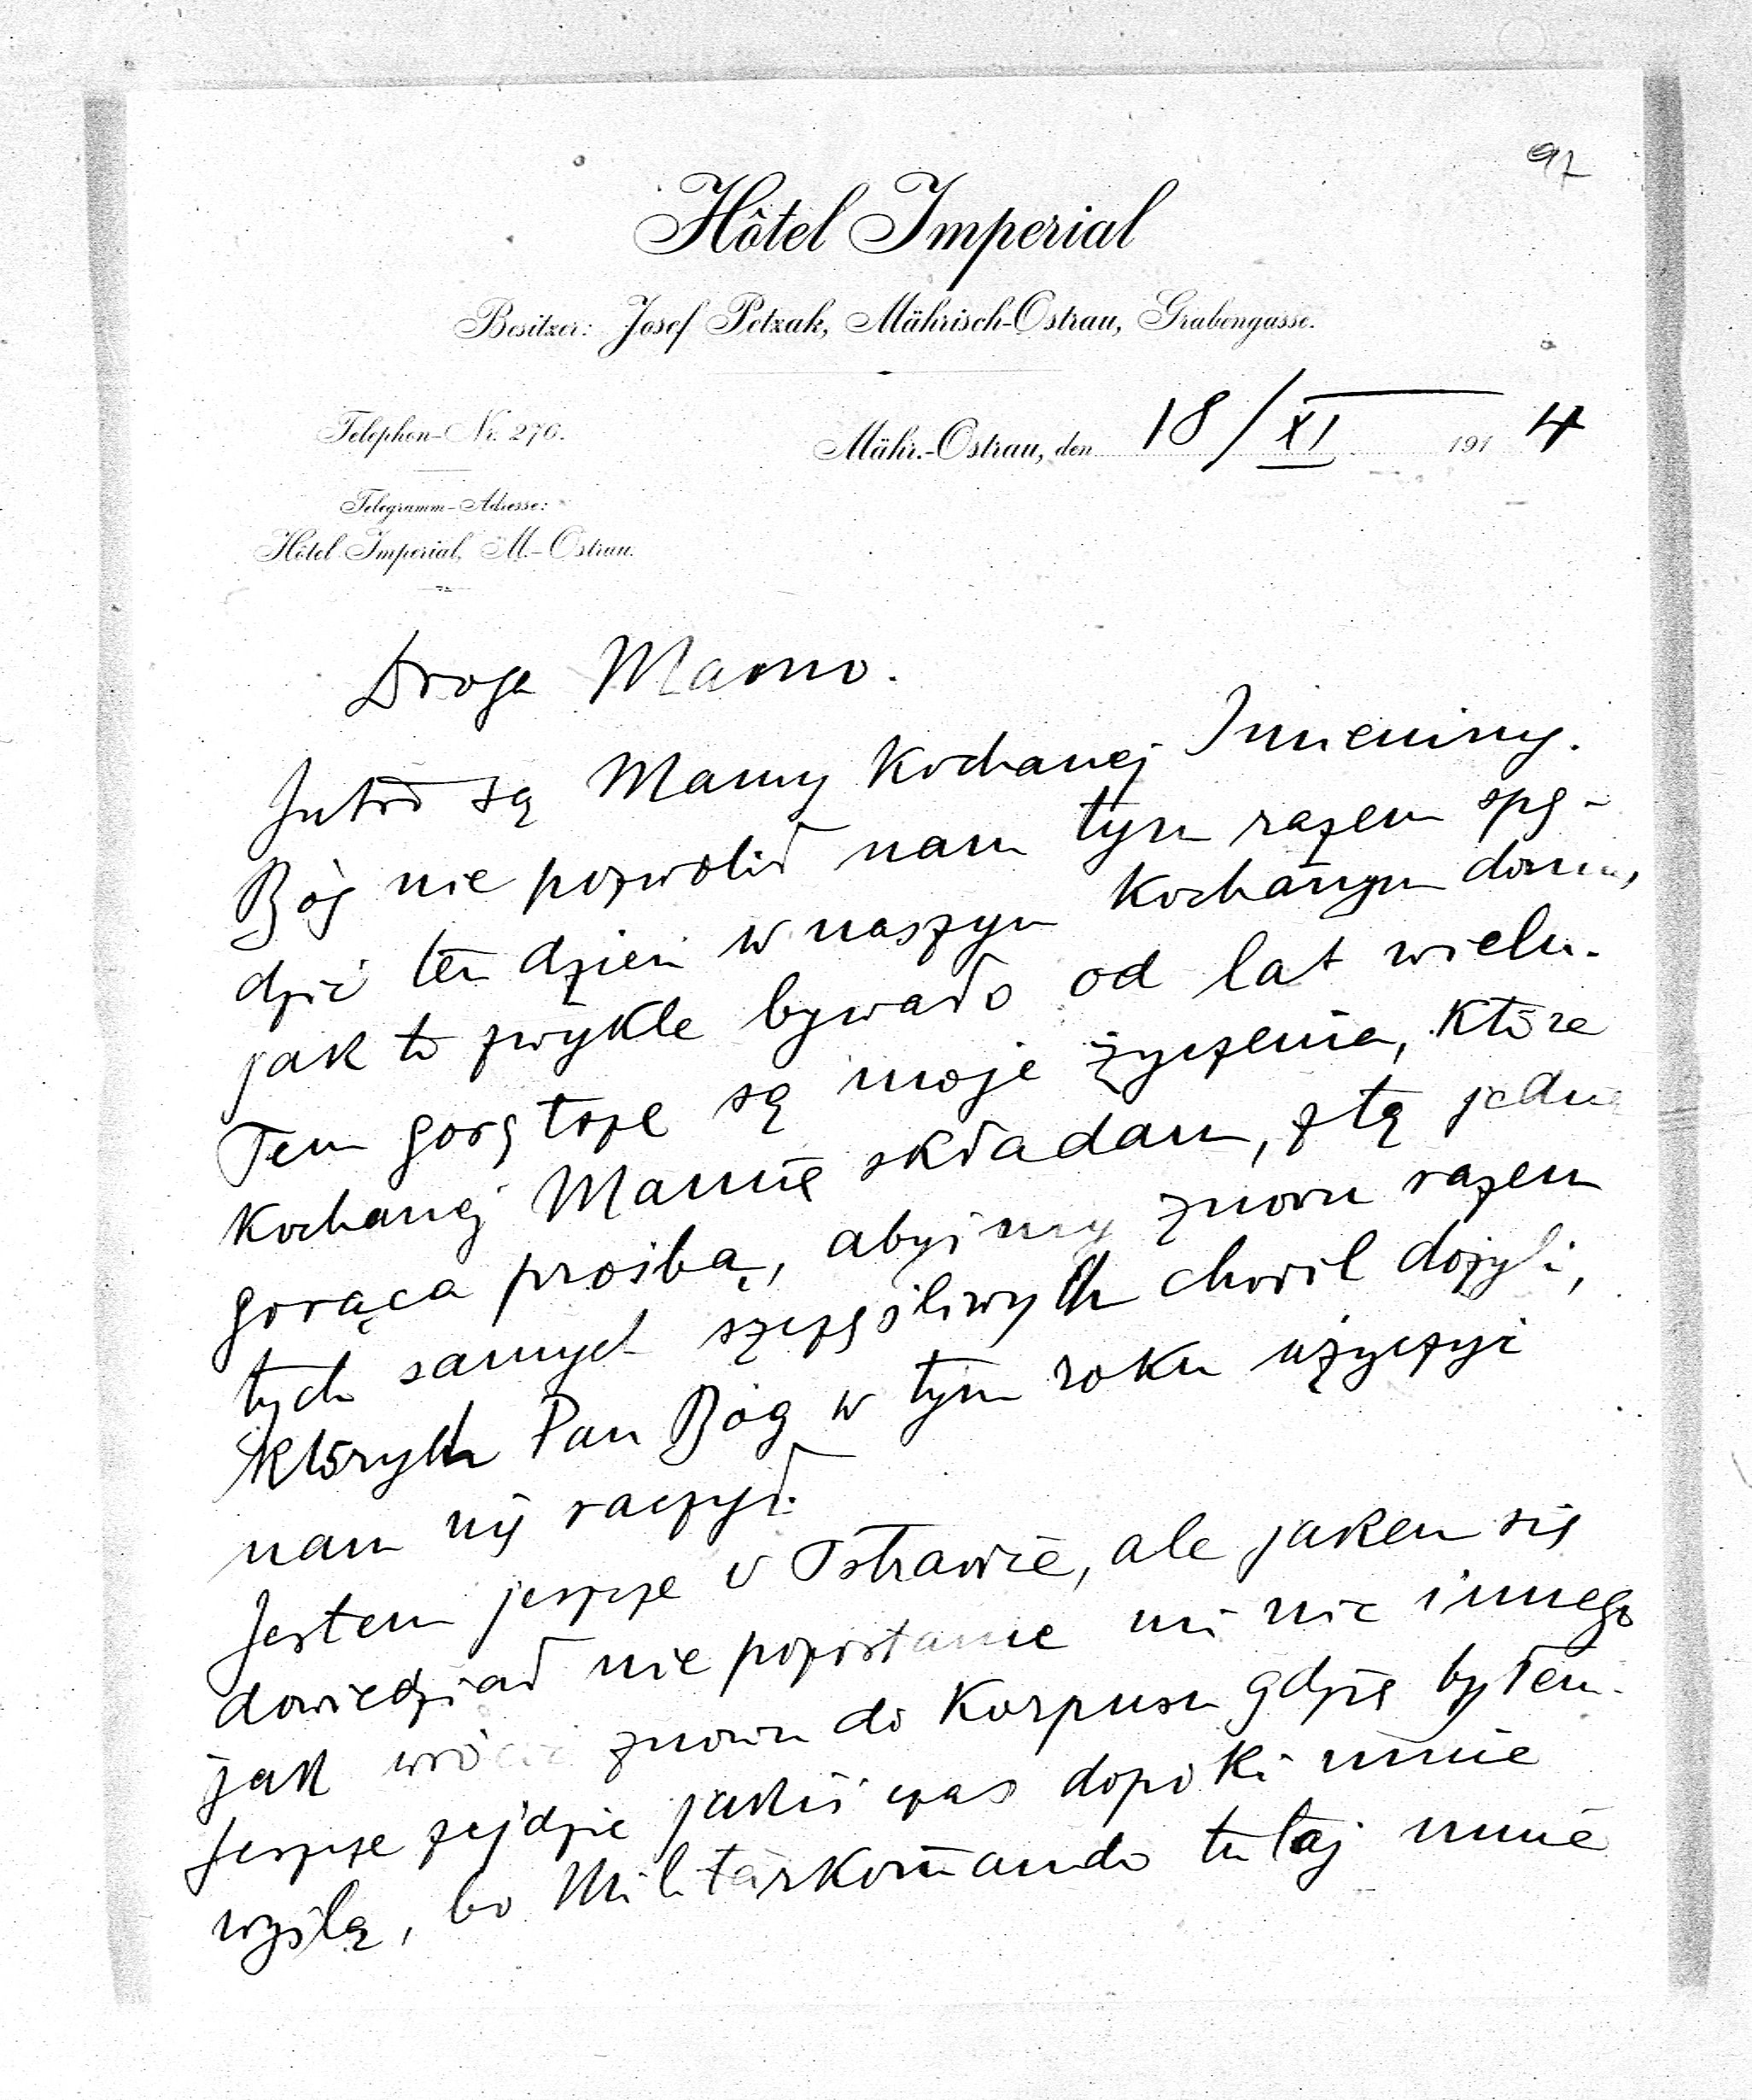 97
Hôtel Imperial
Besitzer: Josef Petzak, Mährisch-Ostrau, Grabengasse.
Telephon-Nr. 276.
Mähr.-Ostrau, den 18/XI 1914
Telegramm-Adresse:
Hôtel Imperial, M.-Ostrau.
Droga Mamo.
Jutro są Mamy Kochanej Imieniny.
Bóg nie pozwolił nam tym razem spę-
dzić ten dzień w naszym Kochanym domu,
jak to zwykle bywało od lat wielu.
Tem gorętsze są moje życzenia, które
Kochanej Mamie składam, z tą jedną
gorącą prośbą, abyśmy znowu razem
tych samych szczęśliwych chwil dożyli,
których Pan Bóg w tym roku użyczyć
nam nie raczył.
Jestem jeszcze w Ostrawie, ale jakem się
dowiedział nie pozostanie mi nic innego
jak wrócić znowu do Korpusu gdzie byłem.
Jeszcze zejdzie jakiś czas dopóki mnie
wyślą, bo Militärkomando tutaj mnie